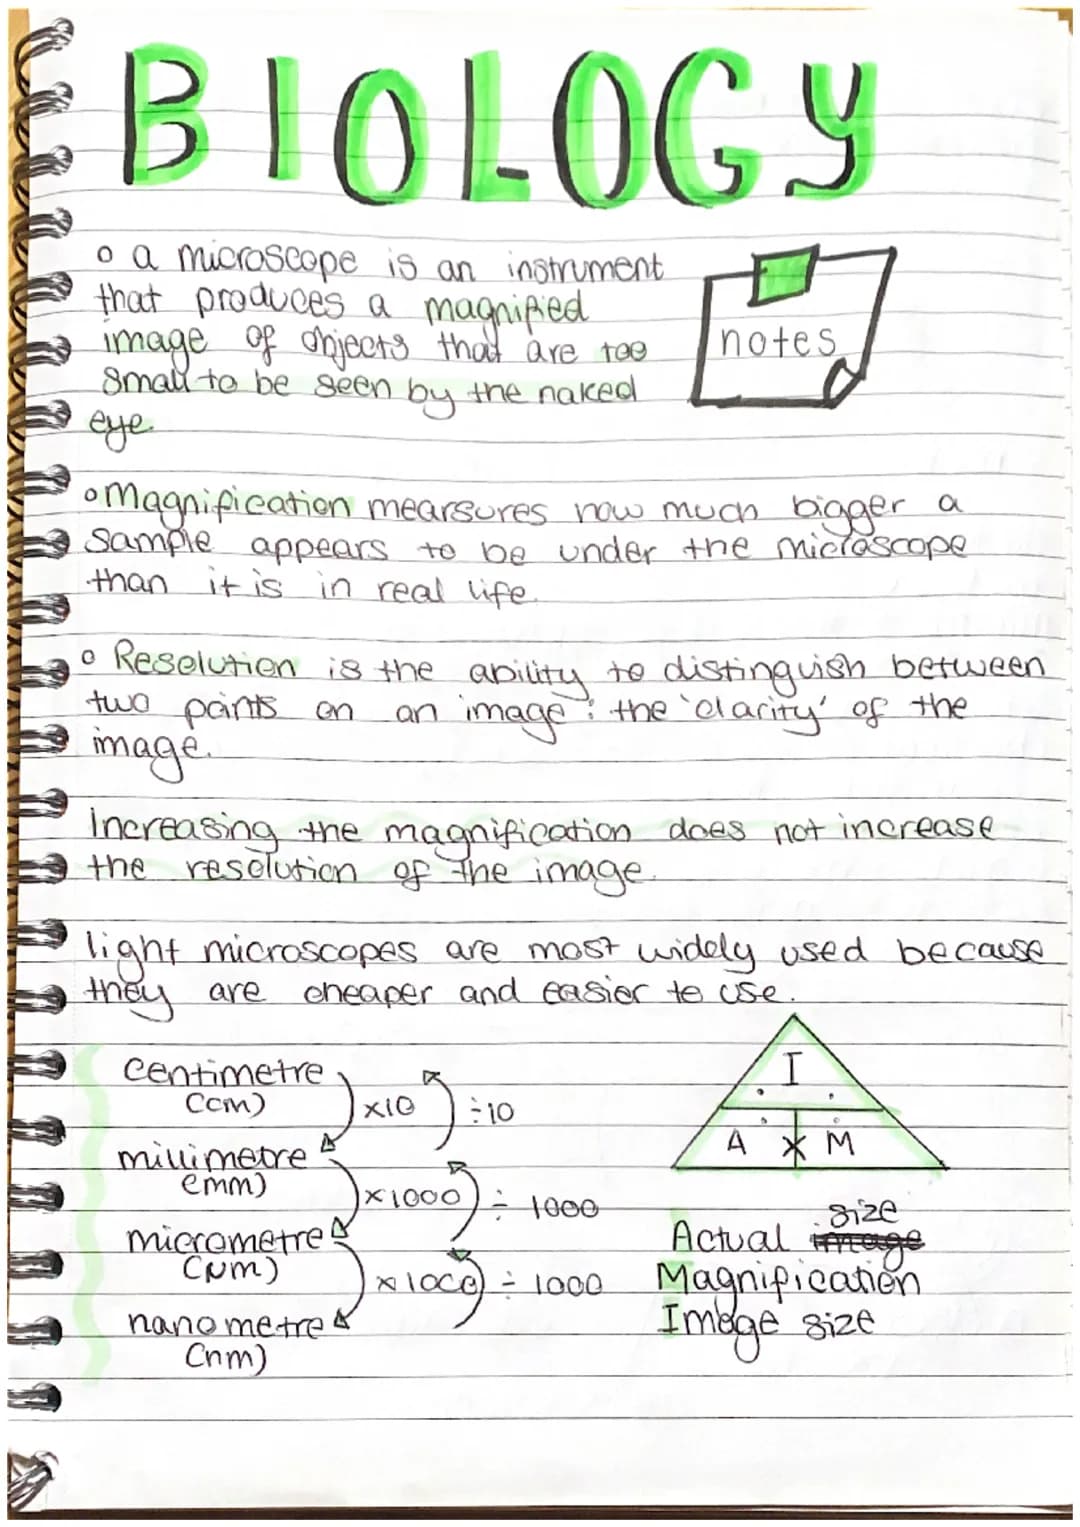 BIOLOGY
o a microscope is an instrument
that produces a magnified
image of objects that are too
small to be seen by the naked
eye.
notes
o Magnification mearsures how much bigger a
sample appears to be under the microscope
than it is in real life.
o Resolution is the ability to distinguish between
two points on an image: the 'clarity' of the
image.
Increasing the magnification does not increase
the resolution of the image.
light microscopes are most widely used because
they are cheaper and easier to use.
centimetre
(cm)
x10
÷10
millimetre
(mm)
x1000
÷ 1000
micrometre
(μm)
x1000
÷ 1000
nanometre
(nm)
I
A x M
size
Actual image
Magnification
Image size